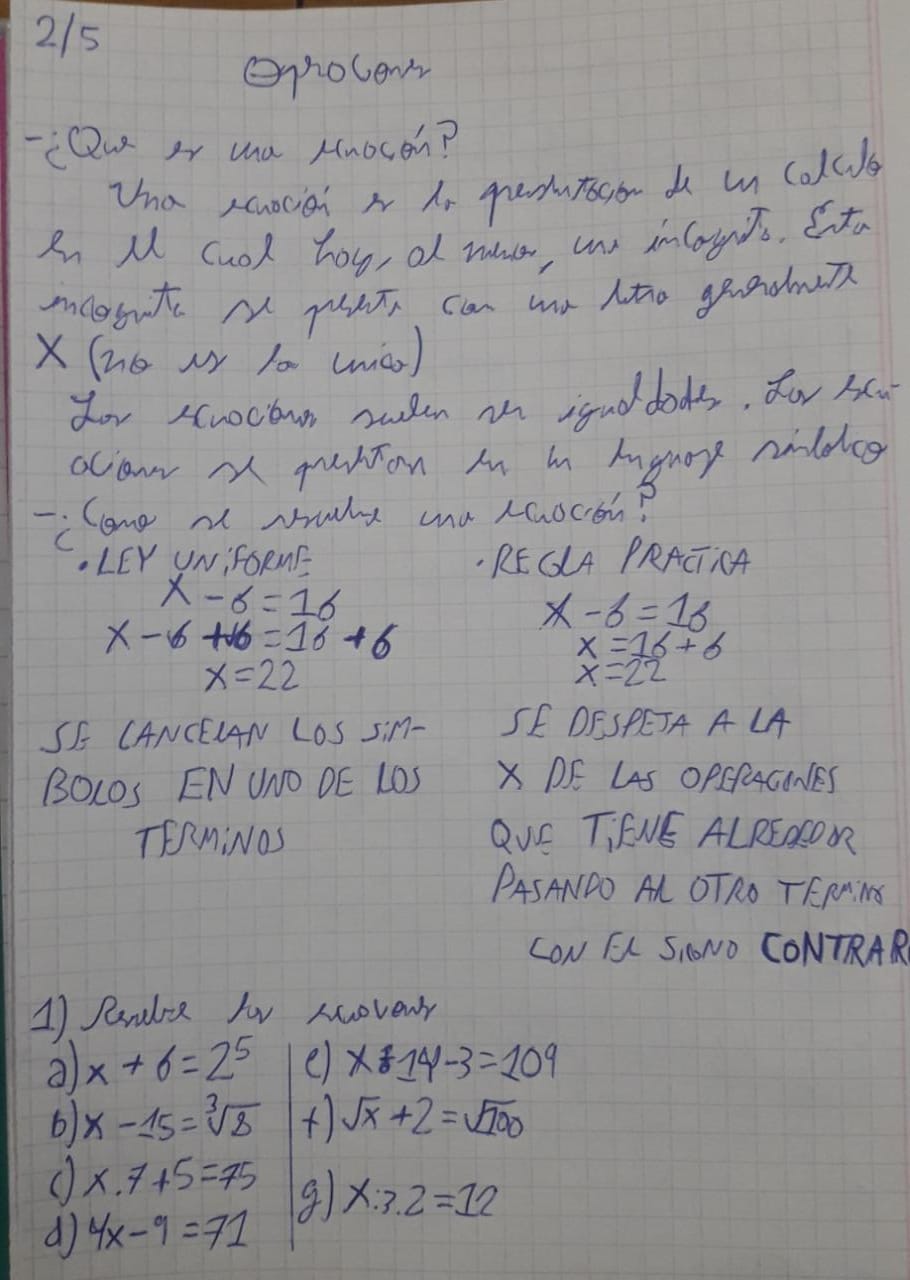 2/5
-¿Que es una ecuación?
Una ecuación es la presentacion de un calculo
en el cual hay, al menos, una incognita. Esta
incognita se presenta con una letra generalmente
X (no es la unica)
Las ecuaciones suelen ser igualdades. Las ecu-
aciones se presentan en un lenguaje simbolico
-¿Como se resuelve una ecuación?
• LEY UNiFORME
X - 6 = 16
X - 6 + 6 = 16 + 6
X = 22
SE CANCELAN LOS SiM-
BOLOS EN UNO DE LOS
TERMiNOS
• REGLA PRACTiCA
X - 6 = 16
X = 16 + 6
X = 22
SE DESPEJA A LA
X DE LAS OPERACIONES
QUE TiENE ALREDEDOR
PASANDO AL OTRO TERMiNO
CON EL SIGNO CONTRAR
1) Resolve las ecuaciones
a) x + 6 = 2⁵
b) x - 15 = ³√8
c) x . 7 + 5 = 75
d) 4x - 9 = 71
e) x + 14 - 3 = 109
f) √x + 2 = √100
g) X : 3 . 2 = 12